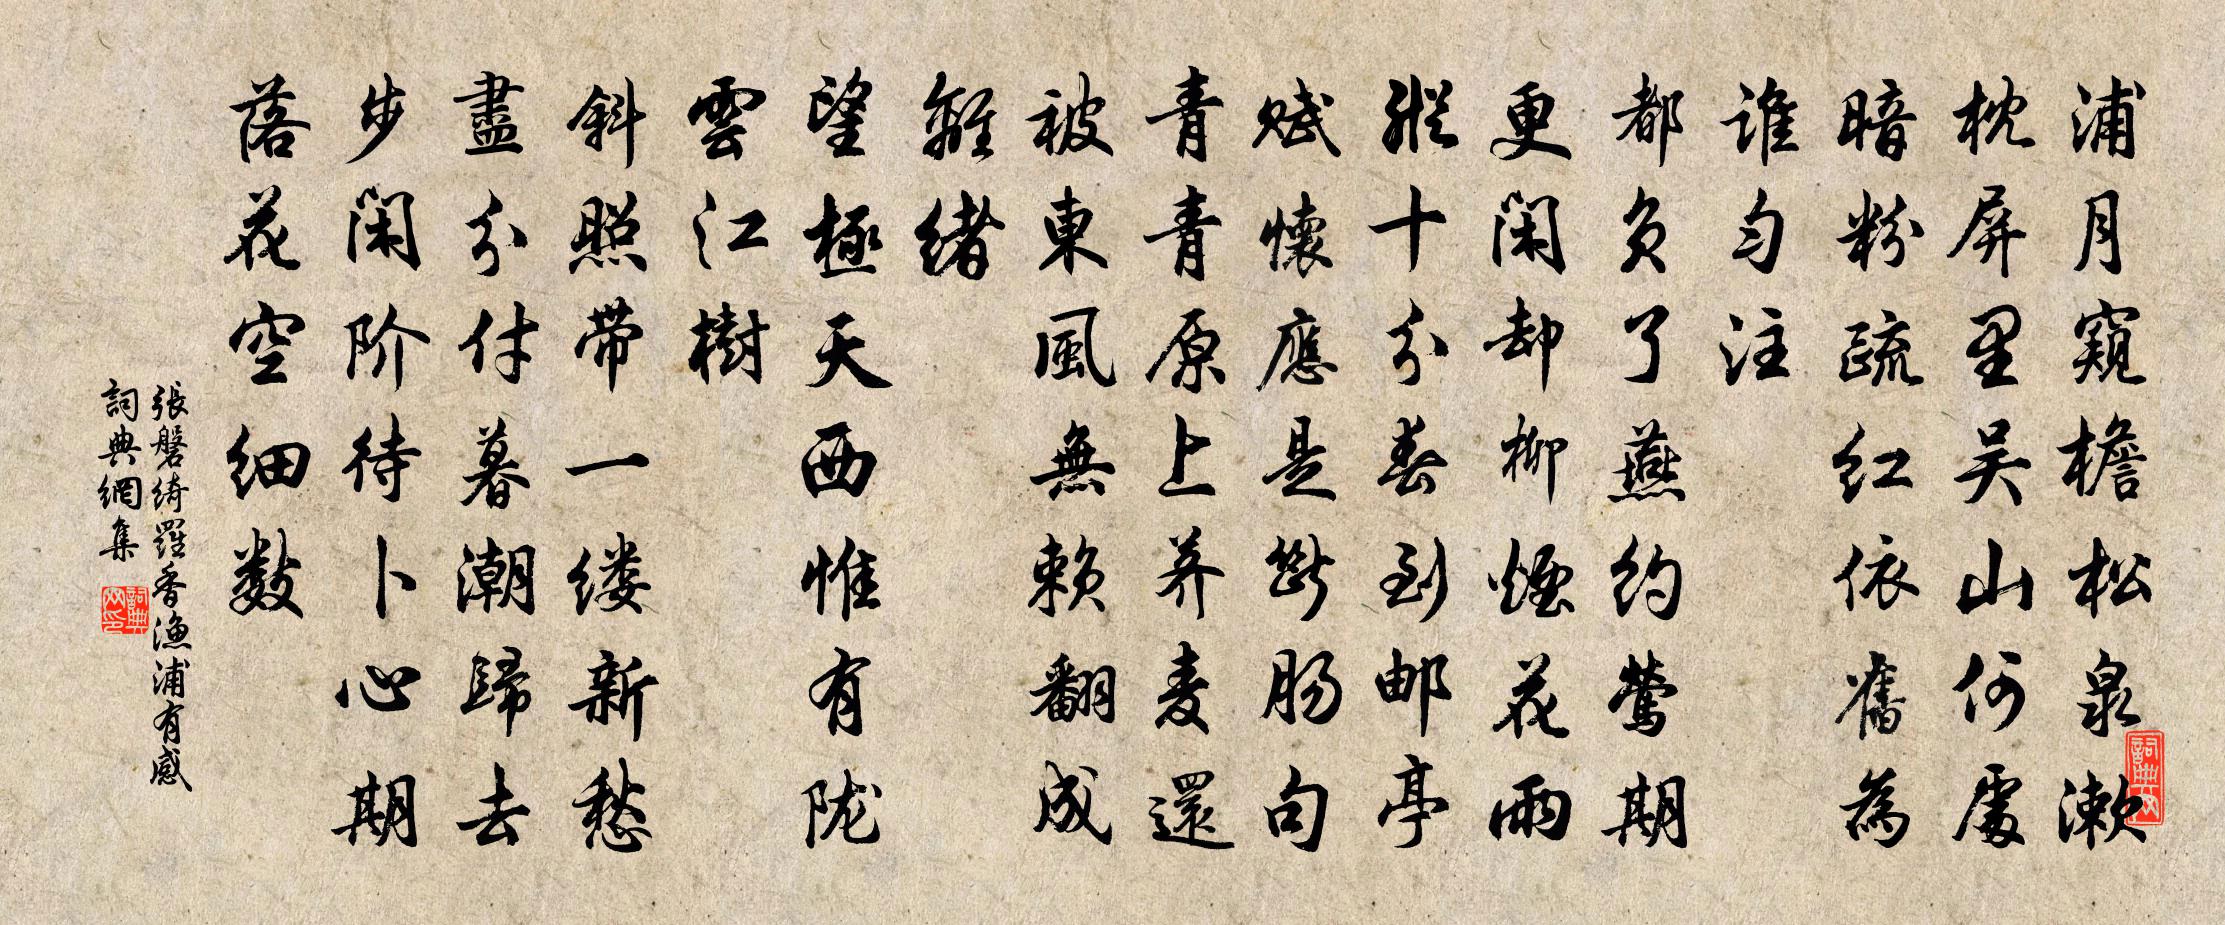 浦月窺檐松泉漱
枕屏里吴山何處
暗粉疏红依舊為
谁匀注
都负了燕约莺期
更闲却柳煙花雨
纵十分春到邮亭
赋懷應是斷肠句
青青原上荞麦還
被東風無赖翻成
離緒
望極天西惟有陇
雲江樹
斜照带一缕新愁
盡分付暮潮歸去
步闲阶待卜心期
落花空细数
張磐綺羅香漁浦有感
詞典網集
詞典网印
詞典网